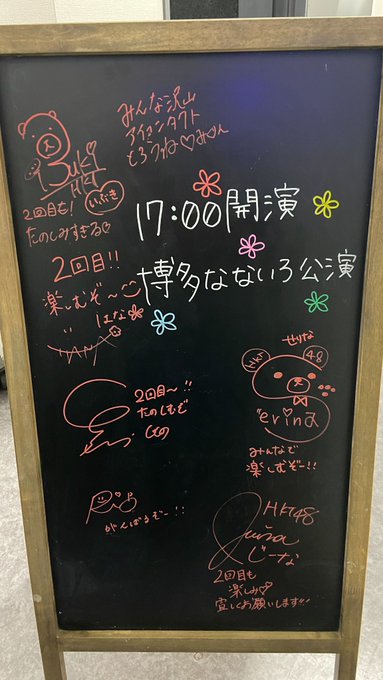 みんな沢山
アイコンタクト
とろうね♡みくん
Buki
HKT
いぶき
2回目も!
たのしみすぎる
17:00開演
博多なないろ公演
2回目!!
楽しむぞ〜
はな
2回目〜!!
たのしむぞ
せりな
HKT 48
erina
みんなで
楽しむぞー!!
Rio
がんばるぞー!!
HKT48
じーな
2回目も
楽しみ♡
宜しくお願いします!!